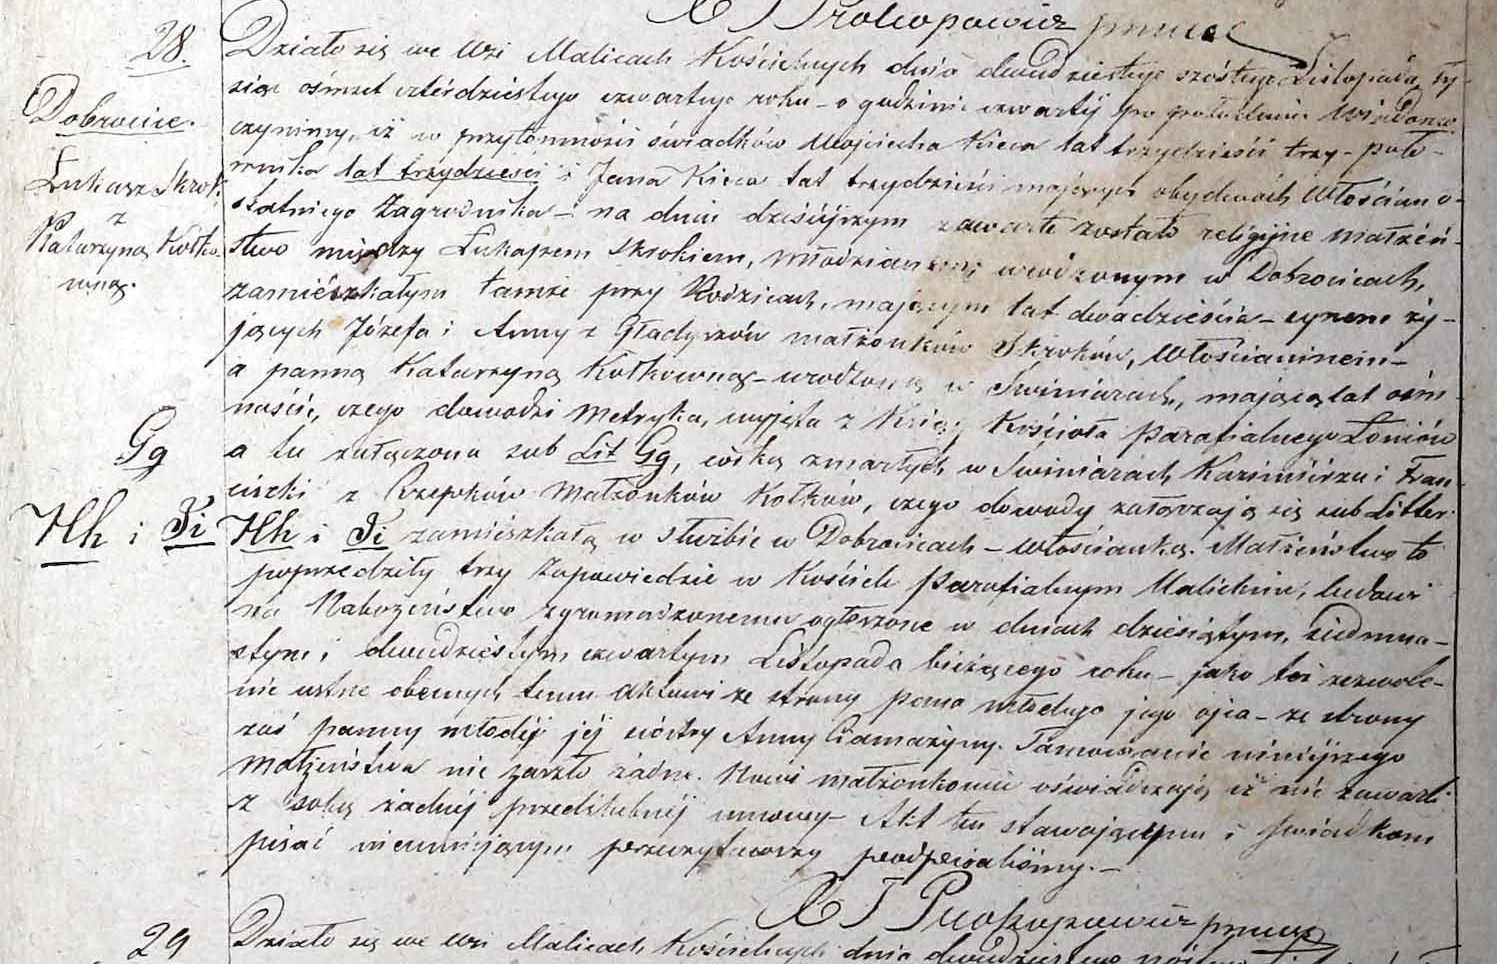 X J Prokopowicz pmucc
28.
Działo się we Wsi Malicach Kościelnych dnia dwudziestego szóstego Listopada, ty-
siąc ośmset czterdziestego czwartego roku – o godzinie czwartéj po południu Wiadomo
Dobrocice.
czynimy, iż w przytomności świadków Wojciecha Kieca lat trzydzieści trzy – poło-
wnika lat trzydzieści i Jana Kieca lat trzydzieści mających obydwóch Włościan o-
Łukasz Skrok.
z
Katarzyną Kołko-
wną.
statniego Zagrodnika – na dniu dzisiéjszym zawarte zostało religijne małżeń-
stwo między Łukaszem Skrokiem, młodzianem urodzonym w Dobrocicach,
zamieszkałym tamże przy Rodzicach, mającym lat dwadzieścia – synem ży-
jących Józefa i Anny z Gładyszów małżonków Skroków, Włościaninem –
a panną Katarzyną Kołkowną – urodzoną w Świniarach, mającą lat ośm-
naście, czego dowodzi Metryka, wyjęta z Księg Kościoła Parafialnego Łoniów
Gg
a tu załączona sub Lit Gg, córką zmarłych w Świniarach Kazimiérza i Fran-
ciszki z Rzepków Małżonków Kołków, czego dowody załączają się sub Litter:
Hh i Ii
Hh i Ii zamieszkałą w służbie w Dobrocicach – włościanką. Małżeństwo to
poprzedziły trzy Zapowiedzie w Kościele Parafialnym Malickim, ludowi
na Nabożeństwo zgromadzonemu ogłoszone w dniach dziesiątym, siedmna-
stym i dwudziestym czwartym Listopada bieżącego roku – jako też zezwole-
nie ustne obecnych temu Aktowi ze strony pana młodego jego ojca – ze strony
zaś panny młodéj jéj siostry Anny Tamowanie niniéjszego
Małżeństwa nie zaszło żadne. Nowi małżonkowie oświadczają iż nie zawarli
z sobą żadnéj przedślubnéj umowy – Akt ten stawającym i świadkom
pisać nieumiejącym przeczytawszy podpisaliśmy. –
X J Prokopowicz
29
Działo się we Wsi Malicach Kościelnych dnia dwudziestego